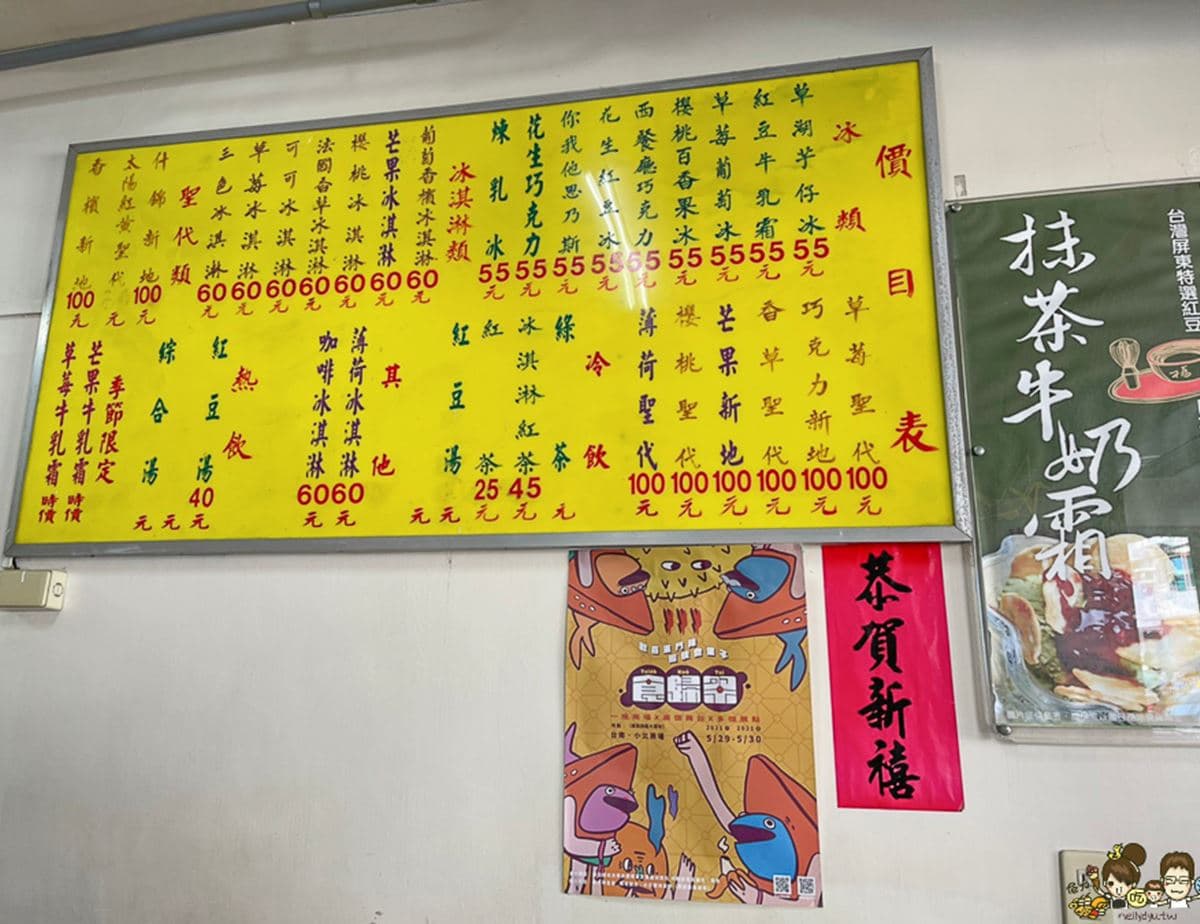 價目表
冰類
草湖芋仔冰 55元
紅豆牛乳霜 55元
草莓葡萄冰 55元
櫻桃百香果冰 55元
西餐廳巧克力 55元
花生紅豆冰 55元
你我他思乃斯 55元
花生巧克力 55元
煉乳冰 55元
冰淇淋類
葡萄香檳冰淇淋 60元
芒果冰淇淋 60元
櫻桃冰淇淋 60元
法國香草冰淇淋 60元
可可冰淇淋 60元
草莓冰淇淋 60元
三色冰淇淋 60元
聖代類
什錦新地 100元
太陽紅黃聖代 元
香檳新地 100元
草莓聖代 100元
巧克力新地 100元
香草聖代 100元
芒果新地 100元
櫻桃聖代 100元
薄荷聖代 100元
冷飲
綠茶 元
冰淇淋紅茶 45元
紅茶 25元
紅豆湯 元
元
其他
薄荷冰淇淋 60元
咖啡冰淇淋 60元
熱飲
紅豆湯 40元
元
綜合湯 元
季節限定
芒果牛乳霜 時價
草莓牛乳霜 時價
台灣屏東特選紅豆
抹茶牛奶霜
福
恭賀新禧
2021 2021
台南·小北商場
5/29-5/30
吃
neilydyu.tw